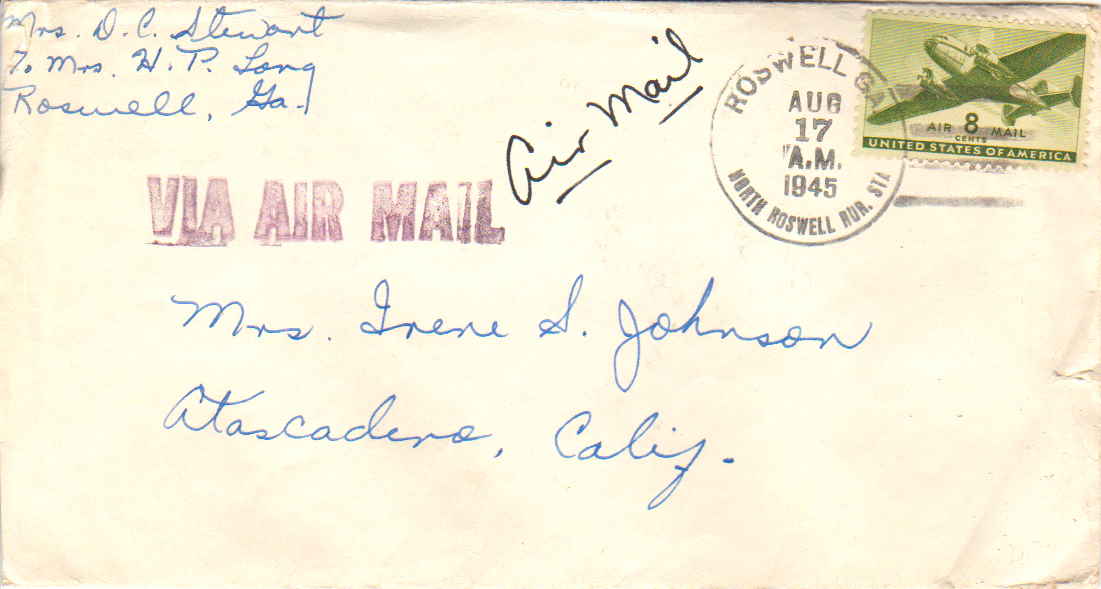 Mrs. D. C. Stewart
% Mrs. H. P. Long
Roswell, Ga.
Air Mail
ROSWELL GA.
AUG
17
A.M.
1945
NORTH ROSWELL RUR. STA
AIR 8 MAIL
CENTS
UNITED STATES OF AMERICA
VIA AIR MAIL
Mrs. Irene S. Johnson
Atascadero, Calif.